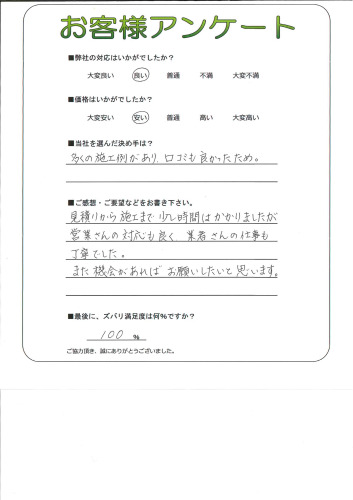 お客様アンケート
■弊社の対応はいかがでしたか?
大変良い 良い 普通 不満 大変不満
■価格はいかがでしたか?
大変安い 安い 普通 高い 大変高い
■当社を選んだ決め手は?
多くの施工例があり、口コミも良かったため。
■ご感想・ご要望などをお書き下さい。
見積りから施工まで少し時間はかかりましたが
営業さんの対応も良く、業者さんの仕事も
丁寧でした。
また機会があればお願いしたいと思います。
■最後に、ズバリ満足度は何%ですか?
100 %
ご協力頂き、誠にありがとうございました。